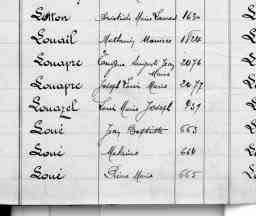 Lotton Aristide Marie Léonard 1630
Louail Mathurin Maurice 1824
Louapre Eugène Auguste Jean Marie 2476
Louapre Joseph Louis Marie 2477
Louazel Louis Marie Joseph 939
Loué Jean Baptiste 663
Loué Mélaine 664
Loué Pierre Marie 665